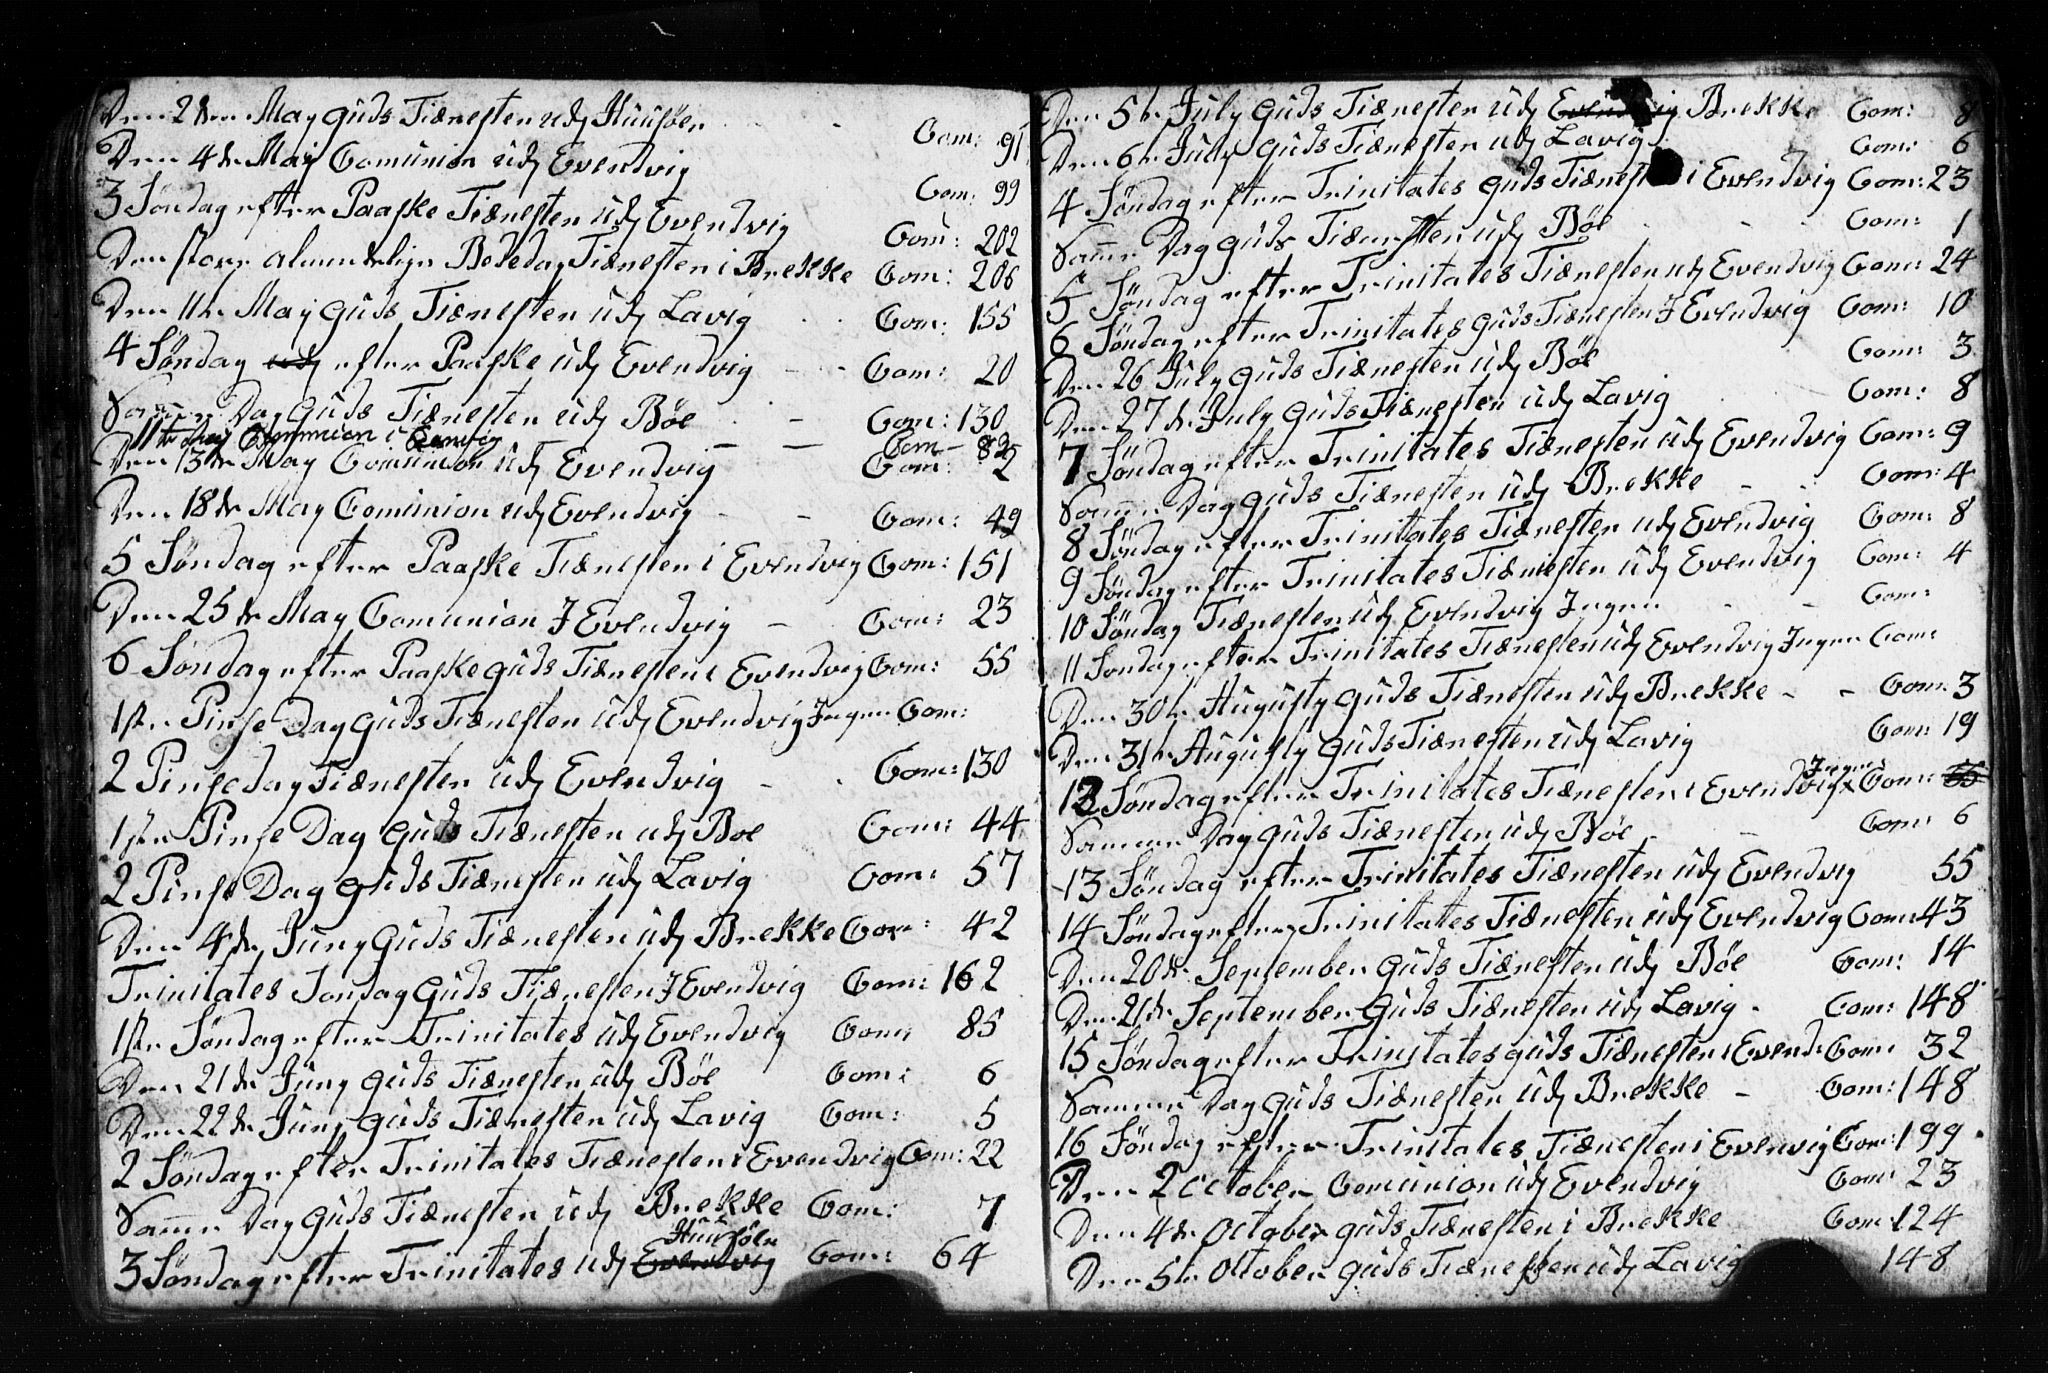 Den 2den May Guds Tiænesten udj Huusøen Com: 91
Den 4de May Comunion udj Evendvig Com: 99
3 Søndag efter Paaske Tiænesten udj Evendvig Com: 202
Den store almindelige Bededag Tiænesten i Brekke Com: 208
Den 11te May Guds Tiænesten udj Lavig Com: 155
4 Søndag udj efter Paaske udj Evendvig Com: 20
Samme Dag Guds Tiænesten udj Bøe Com: 130
11te May Communion i Com 82
Den 13de May Comunion udj Evendvig Com: 2
Den 18de May Comunion udj Evendvig Com: 49
5 Søndag efter Paaske Tiænesten i Evendvig Com: 151
Den 25de May Comunion J Evendvig Com: 23
6 Søndag efter Paaske Guds Tiænesten i Evendvig Com: 55
1ste Pinse Dag Guds Tiænesten udj Evendvig Ingen Com:
2 Pinsedag Tiænesten udj Evendvig Com: 130
1ste Pinse Dag Guds Tiænesten udj Boe Com: 44
2 Pinse Dag Guds Tiænesten udj Lavig Com: 57
Den 4de Juny Guds Tiænesten udj Brekke Com: 42
Trinitates Søndag Guds Tiænesten J Evendvig Com: 162
1ste Søndag efter Trinitates udj Evendvig Com: 85
Den 21de Juny Guds Tiænesten udj Bøe Com: 6
Den 22de Juny Guds Tiænesten udj Lavig Com: 5
2 Søndag efter Trinitates Tiænesten i Evendvig Com: 22
Samme Dag Guds Tiænesten udj Brekke Com: 7
Huusøen
3 Søndag efter Trinitates udj Evendvig Com: 64
Den 5te July Guds Tiænesten udj Evendvig Brekke Com: 8
Den 6te July Guds Tiænesten udj Lavig Com: 6
4 Søndag efter Trinitates Guds Tiænesten i Evendvig Com: 23
Samme Dag Guds Tiænesten udj Bøe Com: 1
5 Søndag efter Trinitates Tiænesten udj Evendvig Com: 24
6 Søndag efter Trinitates Guds Tiænesten J Evendvig Com: 10
Den 26 July Guds Tiænesten udj Bøe Com: 3
Den 27de July Guds Tiænesten udj Lavig Com: 8
7 Søndag efter Trinitates Tiænesten udj Evendvig Com: 9
Samme Dag Guds Tiænesten udj Brekke Com: 4
8 Søndag efter Trinitates Tiænesten udj Evendvig Com: 8
9 Søndag efter Trinitates Tiænesten udj Evendvig Com: 4
10 Søndag Tiænesten udj Evendvig Ingen Com:
11 Søndag efter Trinitates Tiænesten udj Evendvig Ingen Com:
Den 30te Augusty Guds Tiænesten udj Brekke Com: 3
Den 31te Augusty Guds Tiænesten udj Lavig Com: 19
12 Søndag efter Trinitates Tiænesten i Evendvig Ingen Com: 55
Samme Dag Guds Tiænesten udj Bøe Com: 6
13 Søndag efter Trinitates Tiænesten udj Evendvig 55
14 Søndag efter Trinitates Tiænesten udj Evendvig Com: 43
Den 20de September Guds Tiænesten udj Bøe Com: 14
Den 21de September Guds Tiænesten udj Lavig Com: 148
15 Søndag efter Trinitates Guds Tiænesten i Evend Com: 32
Samme Dag Guds Tiænesten udj Brekke Com: 148
16 Søndag efter Trinitates Tiænesten i Evenvig Com: 199
Den 2 October Comunion udj Evendvig Com: 23
Den 4de October Guds Tiænesten i Brekke Com: 124
Den 5te October Guds Tiænesten udj Lavig 148